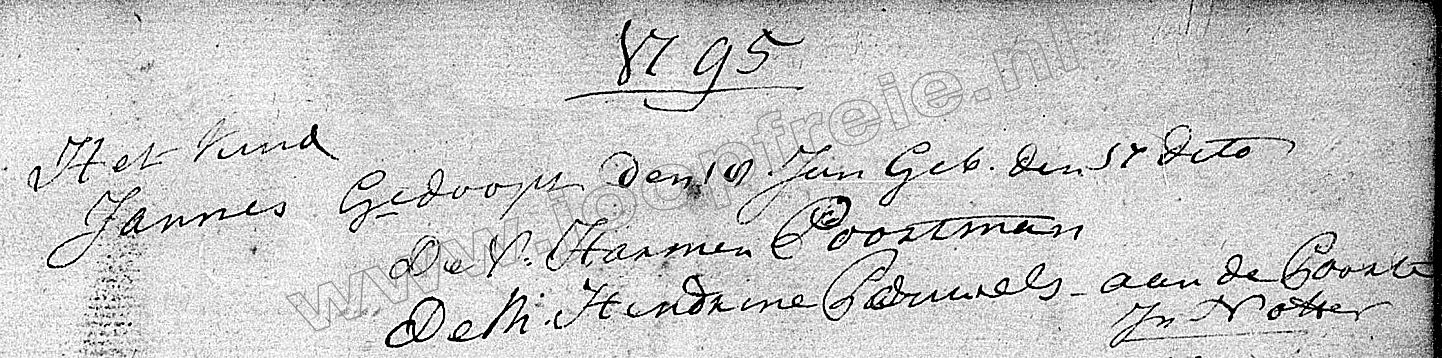 1795
Het kind
Jannes Gedoopt Den 18 Jun Geb. den 17 dito
De V. Harmen Poortman
De M. Hindrine Pauwels - aan de Poorte
Jn Notter
www.joopfreie.nl